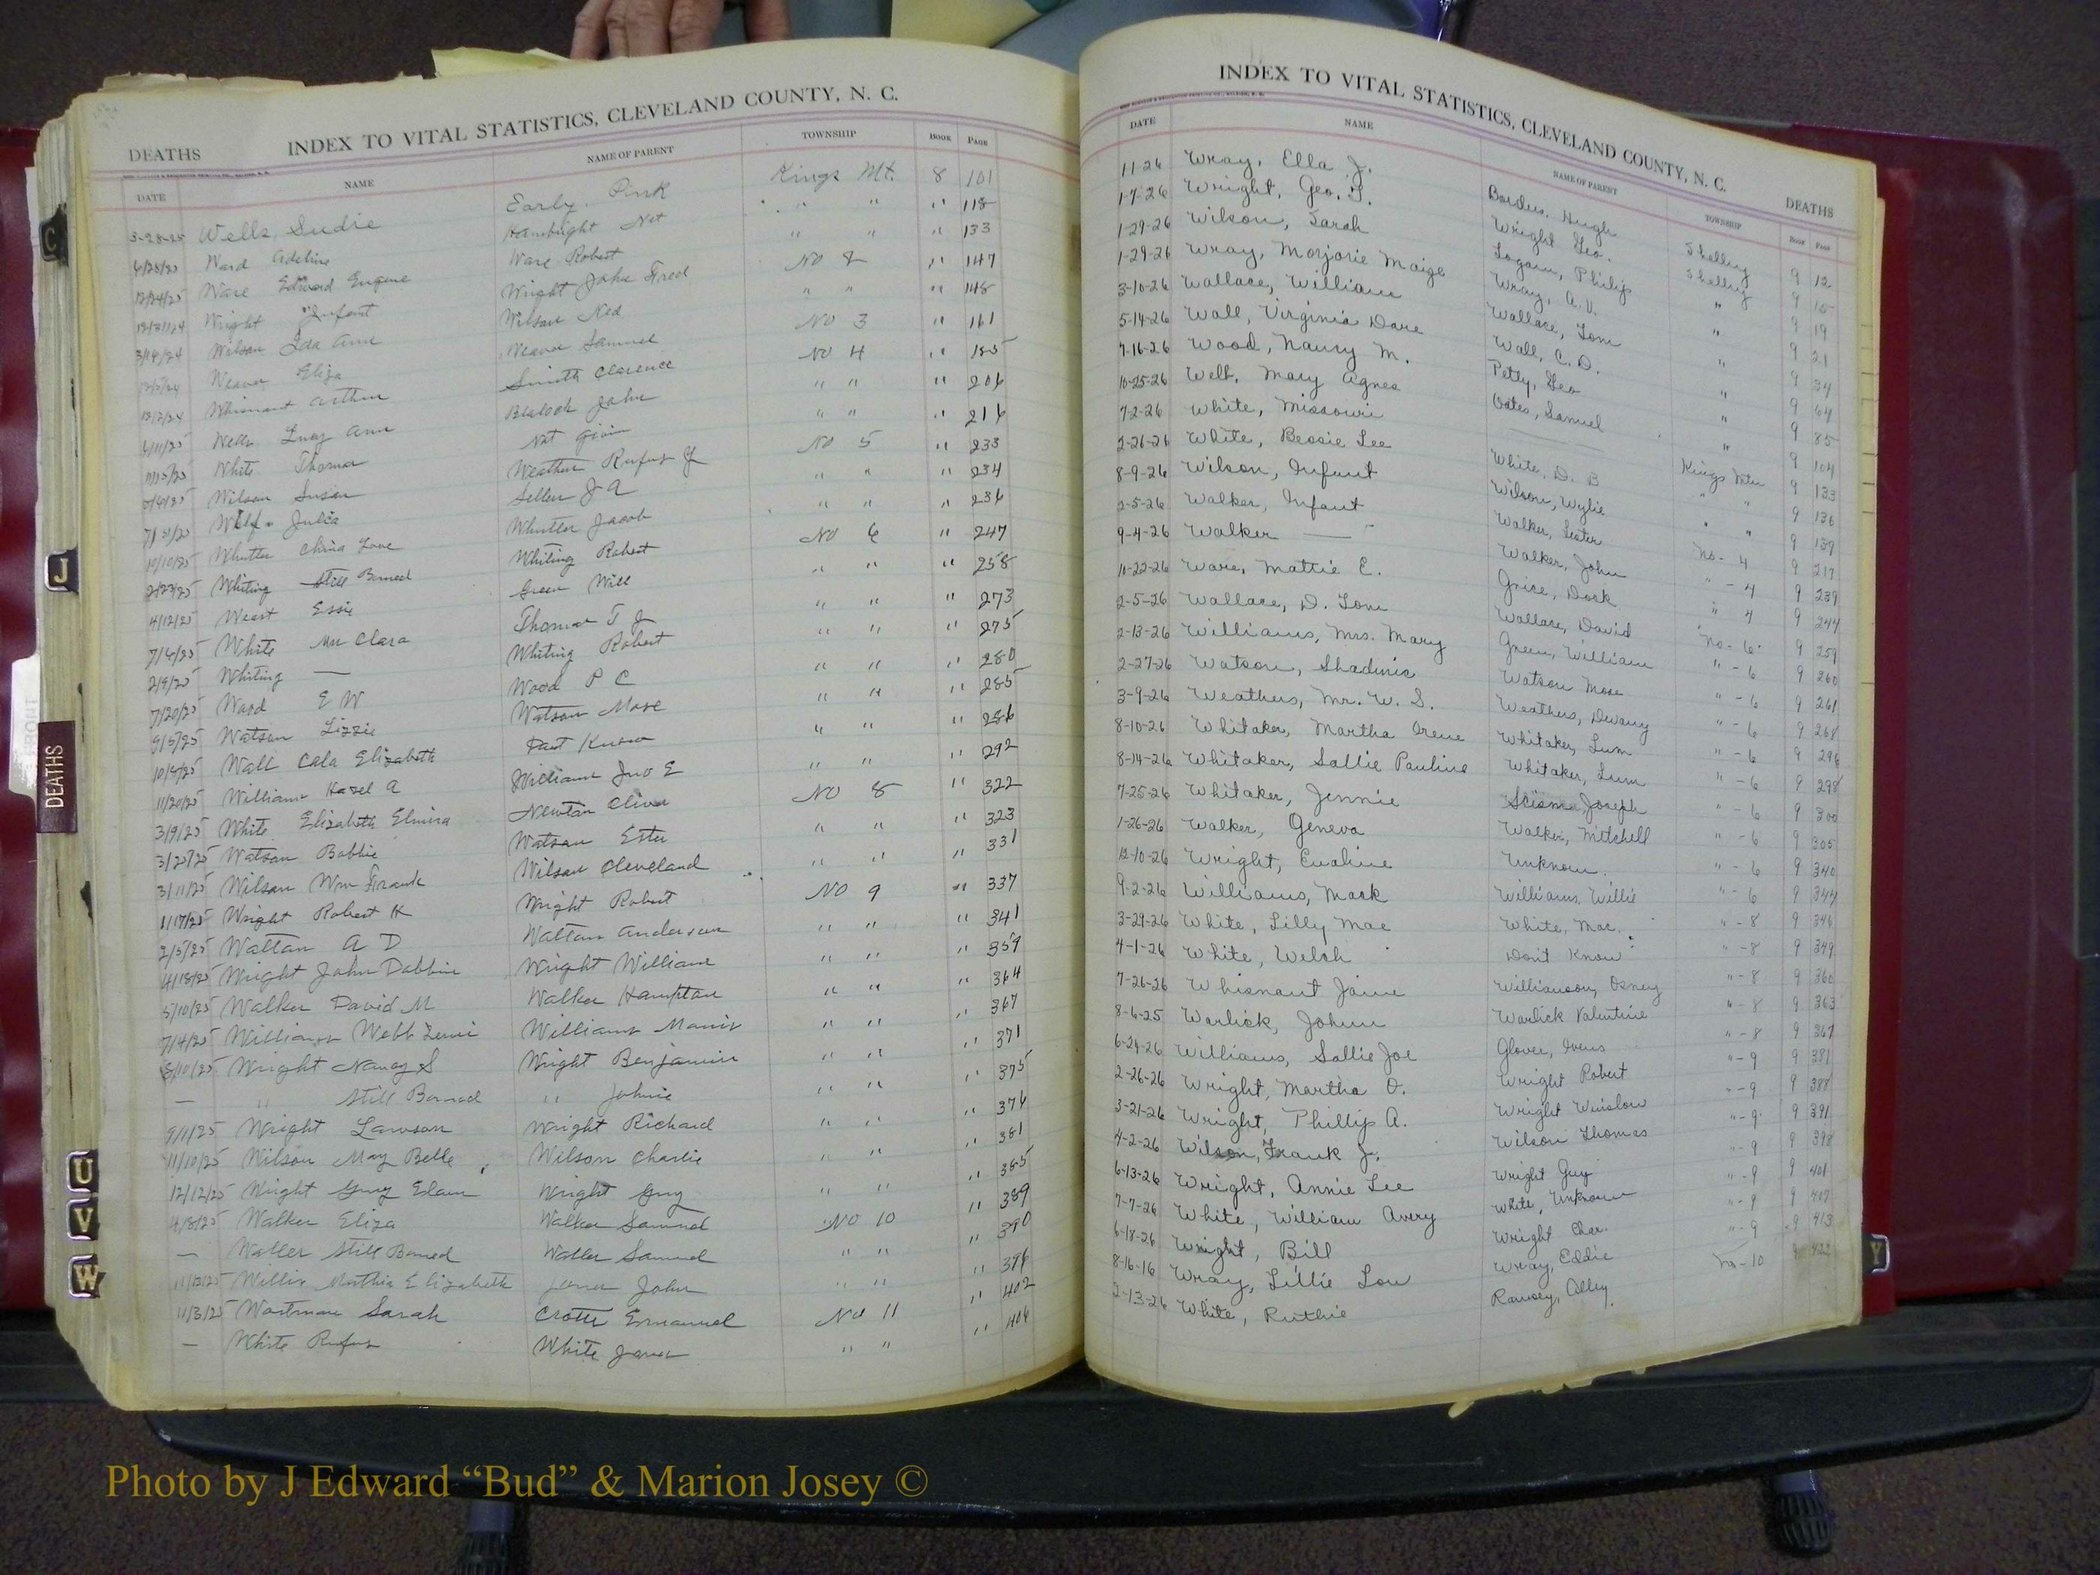 INDEX TO VITAL STATISTICS, CLEVELAND COUNTY, N. C.
DEATHS
DATE NAME NAME OF PARENT TOWNSHIP BOOK PAGE
3-28-25 Wells, Sudie Early Pink Kings Mt. 8 101
Ward Adeline Hambright Nat " " " 118
12/24/25 Ware Edward Eugene Ware Robert " " " 133
Wright Infant Wright John Fred No 2 " 147
Wilson Ida Ann Wilson Ned " " " 148
Weaver Eliza Weaver Samuel No 3 " 161
12/2/24 Whisnant Arthur Smith Clarence No 4 " 185
6/11/25 Lucy Ann Blalock John " " " 206
11/15/25 White Thomas Nat " " " 216
Wilson Susan Weathers Rufus G No 5 " 233
Julia J A " " " 234
10/10/25 China Love Jacob " " " 236
2/23/25 Whiting Still Borned Whiting Robert No 6 " 247
4/12/25 Weast Essie Green Will " " " 258
7/6/25 White Mrs Clara Thomas T J " " " 273
2/9/25 Whiting — Whiting Robert " " " 275
7/20/25 Wood E W Wood P C " " " 280
9/5/25 Watson Lizzie Watson Mose " " " 285
10/9/25 Wall Cala Elizabeth Dont Know " " 286
11/20/25 Williams Hazel A Williams Jno E " " " 292
3/9/25 White Elizabeth Elmira Newton Cline No 8 " 322
3/27/25 Watson Bobbie Watson Ester " " " 323
3/11/25 Wilson Wm Frank Wilson Cleveland " " " 331
1/17/25 Wright Robert H Wright Robert No 9 " 337
2/5/25 Wattan A D Wattan Anderson " " " 341
4/13/25 Wright John Dobbin Wright William " " " 359
5/10/25 Walker David M Walker Hamptan " " " 364
7/14/25 Williams Webb Williams " " " 367
8/10/25 Wright Nancy S Wright Benjamin " " " 371
— " Still Borned " Johnie " " " 375
9/11/25 Wright Lawson Wright Richard " " " 376
11/10/25 Wilson May Belle Wilson Charlie " " " 381
12/12/25 Wright Guy Edam Wright Guy " " " 385
4/8/25 Walker Eliza Walker Samuel No 10 " 389
— Waller Still Borned Waller Samuel " " " 390
11/12/25 Willis Martha Elizabeth Jones John " " " 396
11/3/25 Sarah Emanuel No 11 " 402
— White Rufus White James " " " 404
INDEX TO VITAL STATISTICS, CLEVELAND COUNTY, N. C.
DEATHS
DATE NAME NAME OF PARENT TOWNSHIP BOOK PAGE
11-26 Wray, Ella J. Borders, Hugh Shelby 9 12
1-7-26 Wright, Geo. T. Wright Geo. Shelby 9 15
1-29-26 Wilson, Sarah Logan, Philip " 9 19
1-29-26 Wray, Morjorie Maige Wray, A. V. " 9 21
3-10-26 Wallace, William Wallace, Tom " 9 34
5-14-26 Wall, Virginia Dare Wall, C. D. " 9 64
7-16-26 Wood, Nancy M. Petty, Geo " 9 85
10-25-26 Mary Agnes Oates, Samuel " 9 104
7-2-26 White, Missouri —— Kings Mtn 9 133
2-26-26 White, Bessie Lee White, D. B " " 9 136
8-9-26 Wilson, Infant Wilson, Wylie " " 9 139
2-5-26 Walker, Infant Walker, Lester No-4 9 217
9-4-26 Walker —— Walker, John "-4 9 239
11-22-26 Ware, Mattie E. Grice, Dock " 4 9 244
2-5-26 Wallace, D. Tom Wallace, David No-6 9 259
2-13-26 Williams, Mrs. Mary Green, William "-6 9 260
2-27-26 Watson, Shadinic Watson Mose "-6 9 261
3-9-26 Weathers, Mr. W. S. Weathers, Dewany "-6 9 268
8-10-26 Whitaker, Martha Irene Whitaker, Lum "-6 9 296
8-14-26 Whitaker, Sallie Pauline Whitaker, Lum "-6 9 298
7-25-26 Whitaker, Jennie Joseph "-6 9 300
1-26-26 Walker, Geneva Walker, Mitchell "-6 9 305
12-10-26 Wright, Evaline Unknown. "-6 9 340
9-2-26 Williams, Mark Williams, Willie "-6 9 344
3-29-26 White, Lilly Mae White, Mac. "-8 9 346
4-1-26 White, Welsh Don't Know "-8 9 349
7-26-26 Whisnant Jaine Williamson, Osney "-8 9 360
8-6-25 Warlick, Johnn Warlick Valentine "-8 9 363
6-24-26 Williams, Sallie Joe Glover, Ivens "-8 9 367
2-26-26 Wright, Martha O. Wright Robert "-9 9 381
3-21-26 Wright, Phillip A. Wright Winslow "-9 9 388
4-2-26 Wilson, Frank J. Wilson Thomas "-9 9 391
6-13-26 Wright, Annie Lee Wright Guy "-9 9 398
7-7-26 White, William Avery White, Unknown "-9 9 401
6-18-26 Wright, Bill Wright Char. "-9 9 407
8-16-16 Wray, Lillie Lou Wray, Eddie "-9 9 413
2-13-26 White, Ruthie Ramsey, Olley No-10 9 422
C
J
DEATHS
U
V
W
Y
Photo by J Edward “Bud” & Marion Josey ©